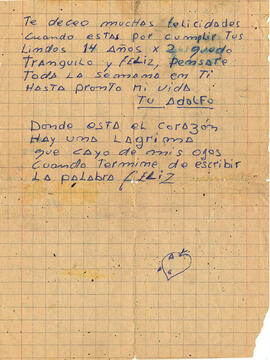 Te deceo muchas felicidades
Cuando estas por cumplir tus
Lindos 14 años x 2 quedo
Tranquilo y feliz, pensare
Toda la semana en Ti
Hasta pronto mi vida
Tu Adolfo
Donde esta el corazón
Hay una lagrima
que cayo de mis ojos
Cuando termine de escribir
La palabra feliz